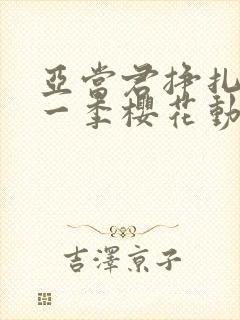 亞當君掙扎
一季櫻花動
吉澤京子